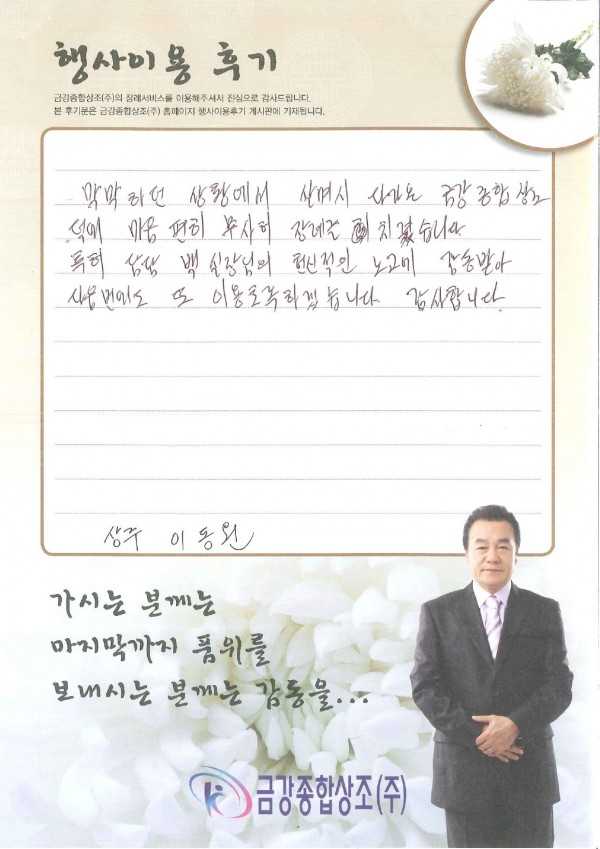 행사이용 후기
금강종합상조(주)의 장례서비스를 이용해주셔서 진심으로 감사드립니다.
본 후기문은 금강종합상조(주) 홈페이지 행사이용후기 게시판에 기재됩니다.
막막하던 상황에서 살며시 다가온 금강종합상조
덕에 마음 편히 무사히 장례를 치렀습니다
특히 상담 백 실장님의 헌신적인 노고에 감동받아
다음번에도 또 이용토록하겠습니다. 감사합니다.
상주 이동원
가시는 분께는
마지막까지 품위를
보내시는 분께는 감동을...
금강종합상조(주)